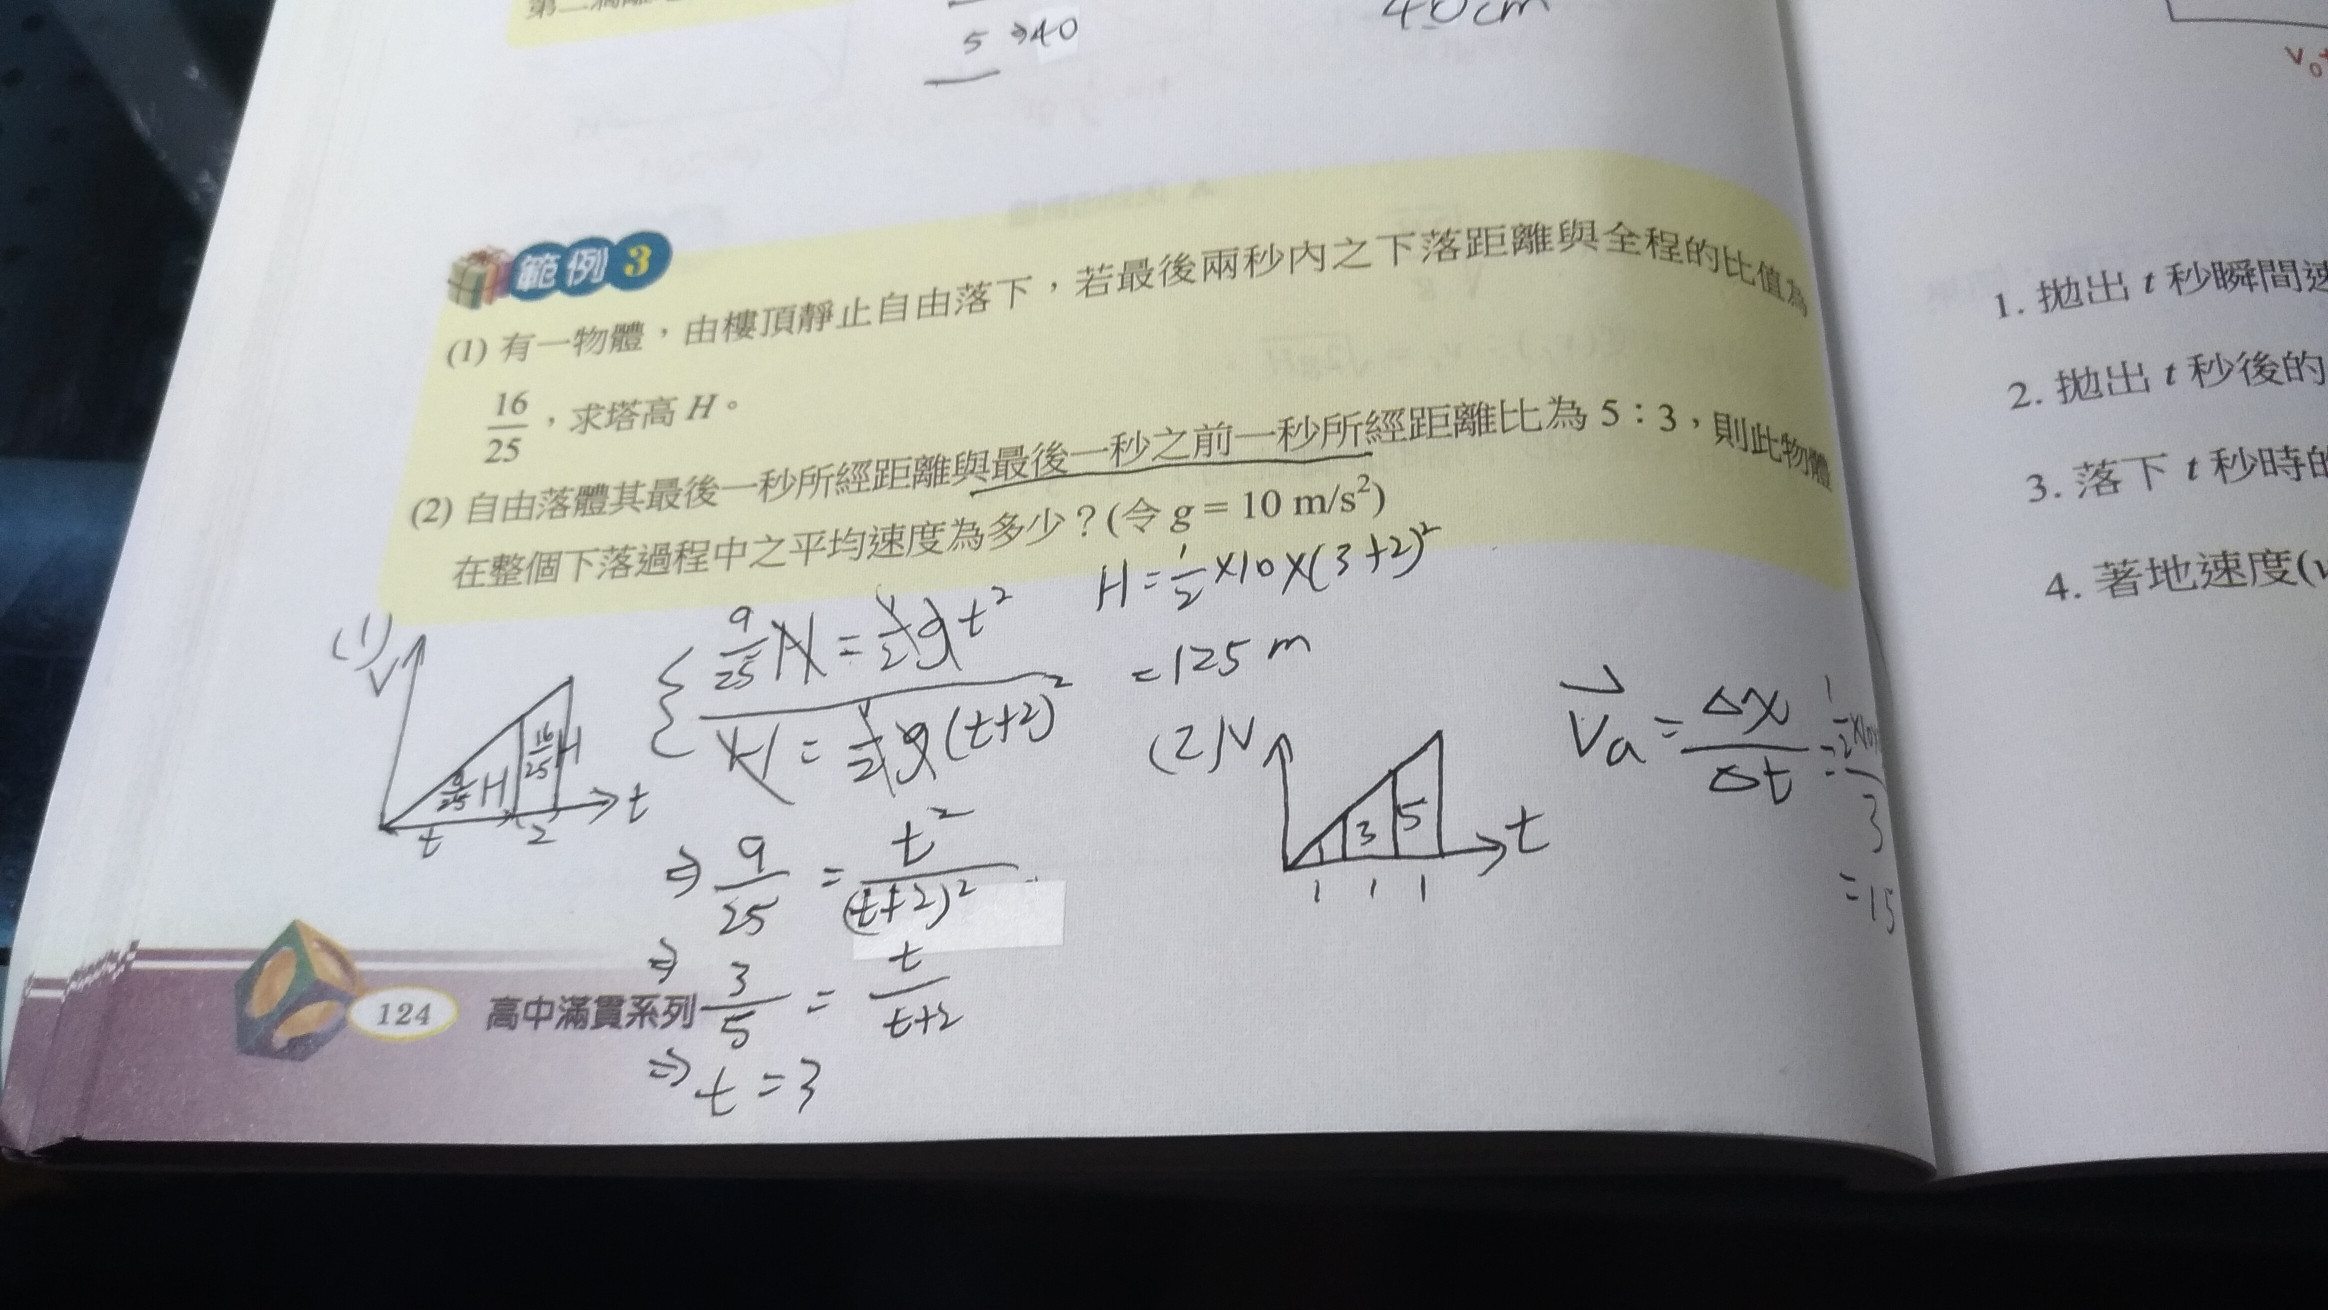 5 ⇒40
40cm
範例 3
(1) 有一物體，由樓頂靜止自由落下，若最後兩秒內之下落距離與全程的比值為
16/25，求塔高 H。
(2) 自由落體其最後一秒所經距離與最後一秒之前一秒所經距離比為 5：3，則此物體
在整個下落過程中之平均速度為多少？(令 g = 10 m/s²)
H = 1/2 ×10×(3+2)²
= 125 m
(1)
V
9/25 H
16/25 H
t
2
t
9/25 H = 1/2 g t²
H = 1/2 g (t+2)²
⇒ 9/25 = t²/(t+2)²
⇒ 3/5 = t/(t+2)
⇒ t = 3
(2) V
1 3 5
t
1 1 1
Va = Δx/Δt =
3
= 15
124 高中滿貫系列
V₀
1. 拋出 t 秒瞬間速
2. 拋出 t 秒後的
3. 落下 t 秒時的
4. 著地速度(v